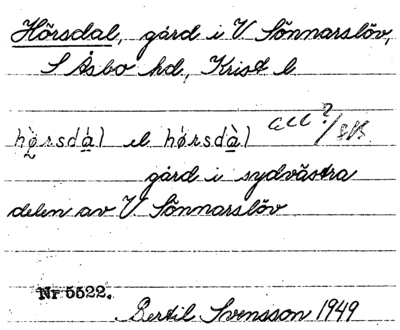 Hörsdal, gård i V. Sönnarslöv,
S Åsbo hd, Krist l
hǫ̀rsdá̱l el hǿrsdà̱l acc?/SB.
gård i sydvästra
delen av V. Sönnarslöv
Nr 5522.
Bertil Svensson 1949